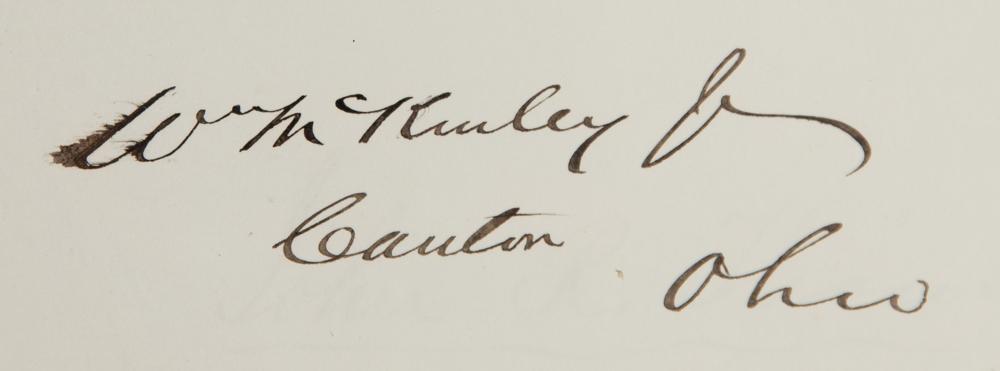 Wm McKinley Jr
Canton Ohio